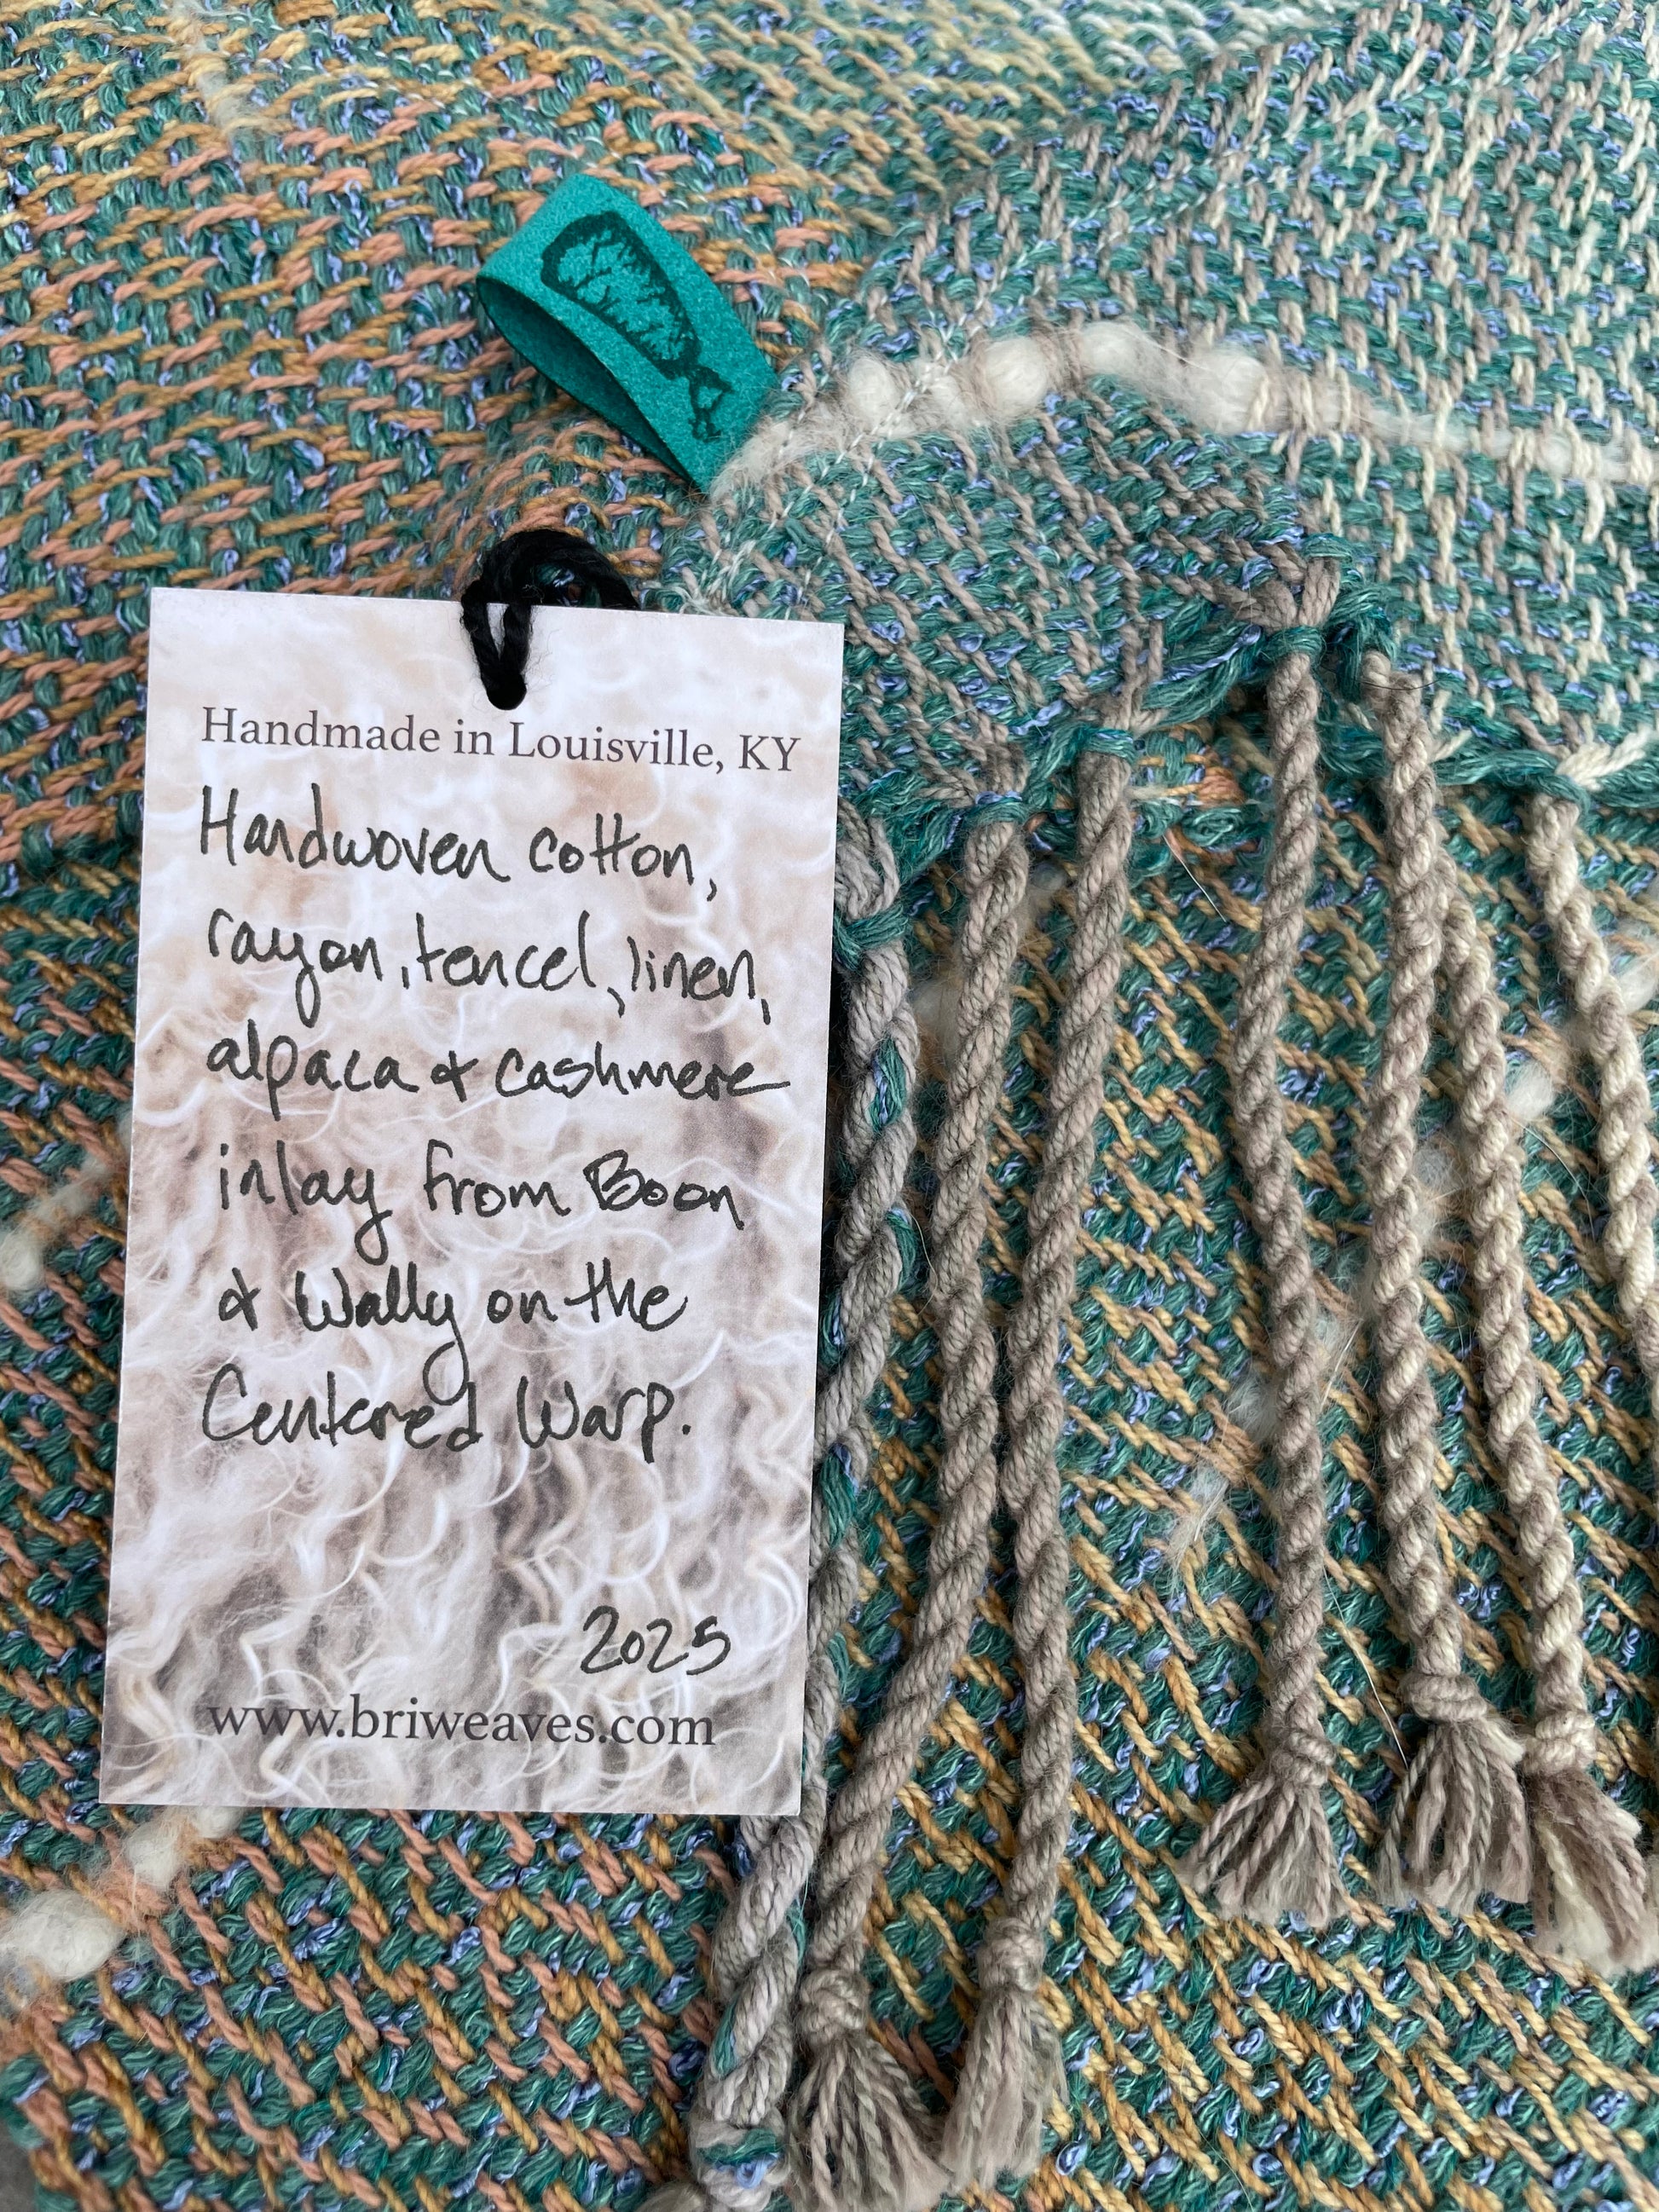 Handmade in Louisville, KY
Handwoven cotton,
rayon, tencel, linen,
alpaca & cashmere
inlay from Boon
& Wally on the
Centered Warp.
2025
www.briweaves.com